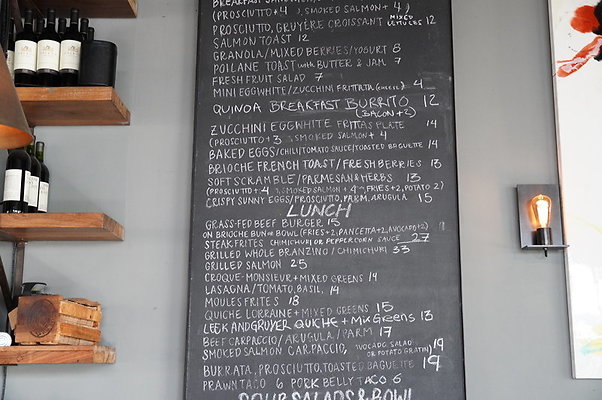 BREAKFAST SANDWICH
(PROSCIUTTO+4, SMOKED SALMON+4)
PROSCIUTTO, GRUYÈRE CROISSANT MIXED LETTUCES 12
SALMON TOAST 12
GRANOLA/MIXED BERRIES/YOGURT 8
POILANE TOAST with BUTTER & JAM 7
FRESH FRUIT SALAD 7
MINI EGGWHITE/ZUCCHINI FRITTATA (1 PIECE) 4
QUINOA BREAKFAST BURRITO 12
(BACON+2)
ZUCCHINI EGGWHITE FRITTAS PLATE 14
(PROSCIUTTO+3, SMOKED SALMON+4
BAKED EGGS/CHILI/TOMATO SAUCE/TOASTED BAGUETTE 14
BRIOCHE FRENCH TOAST/FRESH BERRIES 13
SOFT SCRAMBLE/PARMESAN & HERBS 13
(PROSCIUTTO+4, SMOKED SALMON+4, FRIES+2, POTATO 2)
CRISPY SUNNY EGGS/PROSCIUTTO, PARM, ARUGULA 15
LUNCH
GRASS-FED BEEF BURGER 15
ON BRIOCHE BUN OR BOWL (FRIES+2, PANCETTA+2, AVOCADO+2)
STEAK FRITES CHIMICHURI OR PEPPERCORN SAUCE 27
GRILLED WHOLE BRANZINO/CHIMICHURI 33
GRILLED SALMON 25
CROQUE-MONSIEUR+MIXED GREENS 14
LASAGNA/TOMATO, BASIL 14
MOULES FRITES 18
QUICHE LORRAINE+MIXED GREENS 15
LEEK AND GRUYER QUICHE+Mix Greens 13
BEEF CARPACCIO/ARUGULA/PARM 17
SMOKED SALMON CARPACCIO, AVOCADO SALAD OR POTATO GRATIN) 19
BURRATA, PROSCIUTTO, TOASTED BAGUETTE 19
PRAWN TACO 6 PORK BELLY TACO 6
SOUP SALADS & BOWL